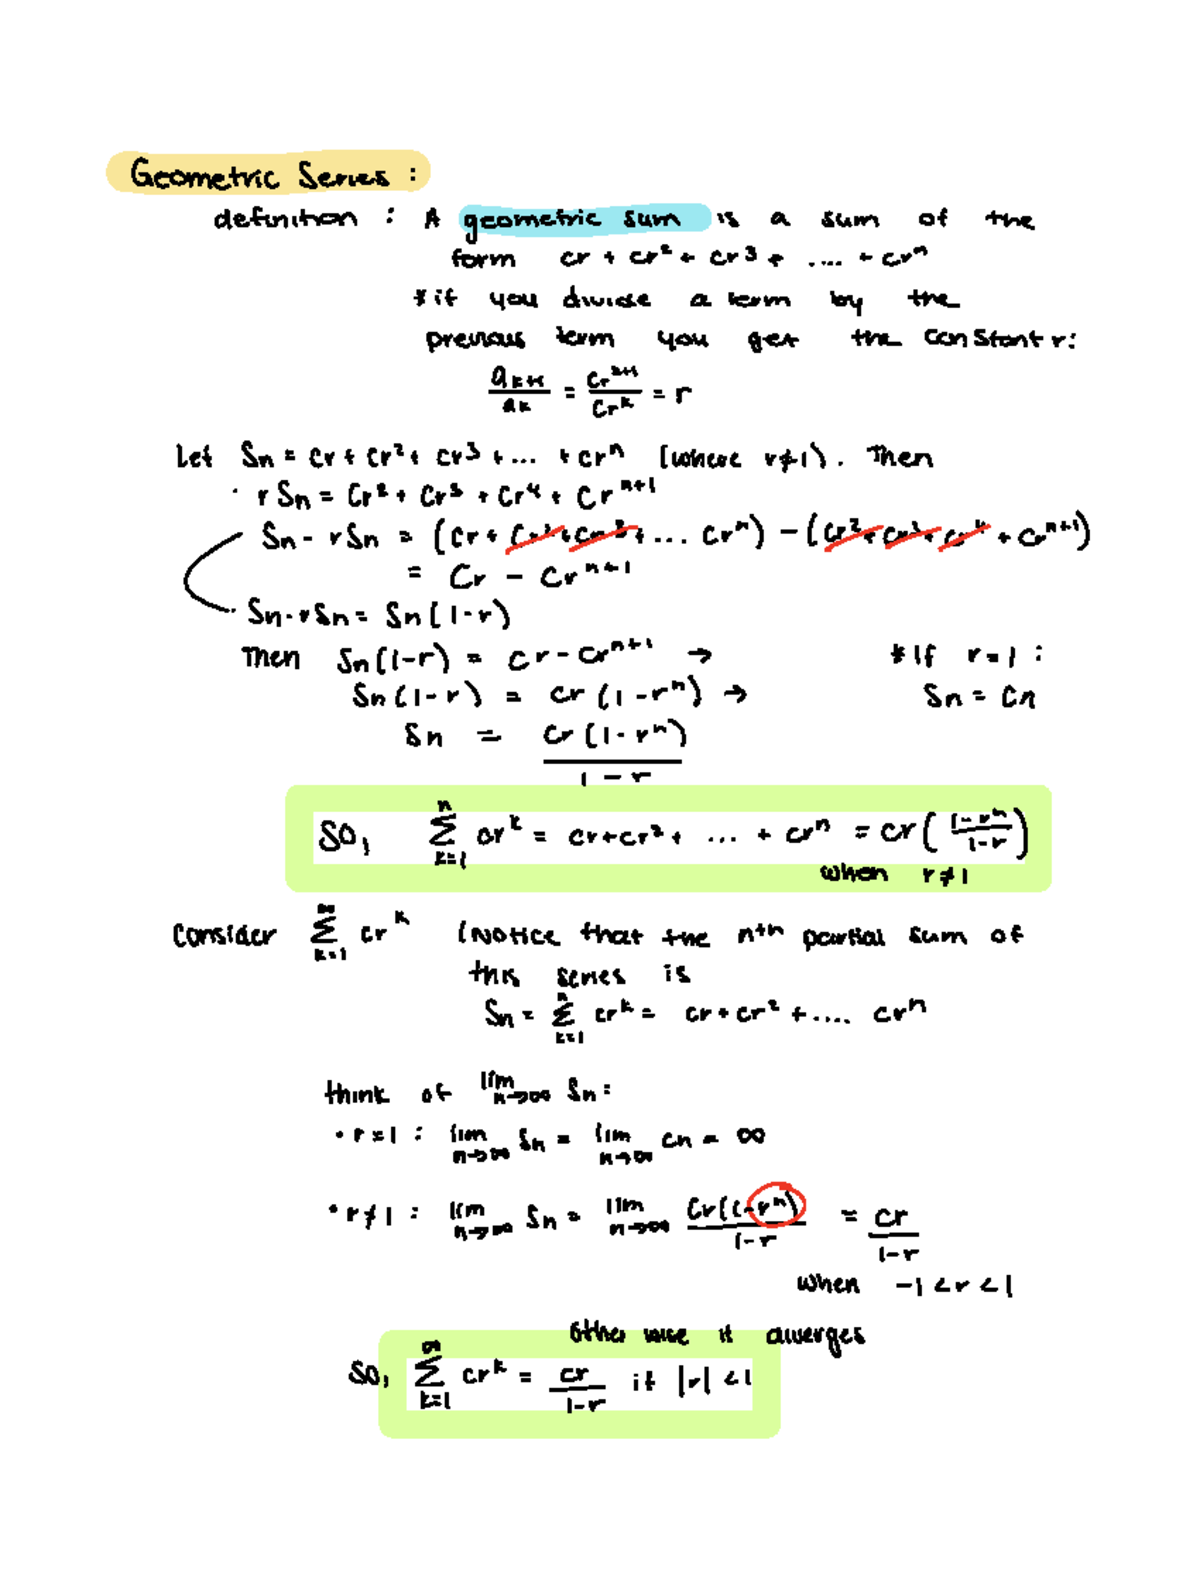 Geometric Series :
definition : A geometric sum is a sum of the
form cr + cr² + cr³ + .... + crⁿ
* if you divide a term by the
previous term you get the constant r:
aₖ₊₁/aₖ = crᵏ⁺¹/crᵏ = r
Let Sn = cr + cr² + cr³ + ... + crⁿ (where r≠1). Then
· rSn = cr² + cr³ + cr⁴ + crⁿ⁺¹
Sn - rSn = (cr + cr² + cr³ + ... crⁿ) - (cr² + cr³ + cr⁴ + crⁿ⁺¹)
= cr - crⁿ⁺¹
Sn - rSn = Sn(1-r)
Then Sn(1-r) = cr - crⁿ⁺¹ →
* If r=1 :
Sn(1-r) = cr(1-rⁿ) →
Sn = cn
Sn = cr(1-rⁿ)/1-r
So, n Σ k=1 crᵏ = cr+cr²+ ... + crⁿ = cr(1-rⁿ/1-r)
when r≠1
Consider ∞ Σ k=1 crᵏ (Notice that the nth partial sum of
this series is
Sn = n Σ k=1 crᵏ = cr+cr² + .... crⁿ
think of lim n→∞ Sn:
• r=1 : lim n→∞ Sn = lim n→∞ cn = ∞
• r≠1 : lim n→∞ Sn = lim n→∞ cr(1-rⁿ)/1-r = cr/1-r
when -1<r<1
otherwise it diverges
So, ∞ Σ k=1 crᵏ = cr/1-r if |r|<1